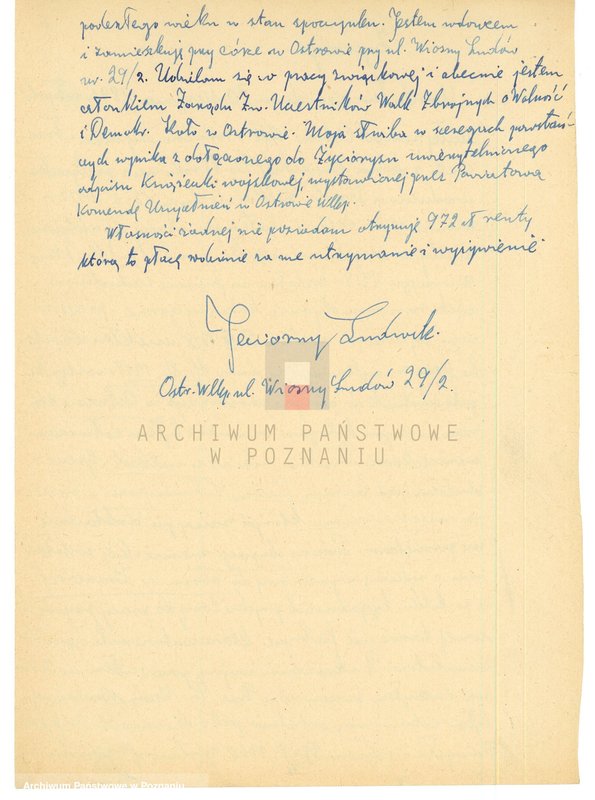 podeszłego wieku w stan spoczynku. Jestem wdowcem
i zamieszkuję przy córce w Ostrowie przy ul. Wiosny Ludów
nr. 29/2. Udzielam się w pracy związkowej i obecnie jestem
członkiem Zarządu Zw. Uczestników Walk Zbrojnych o Wolność
i Demokr. Koło w Ostrowie. Moja służba w szeregach powstań-
czych wynika z dołączonego do Życiorysu uwierzytelnionego
odpisu Książeczki wojskowej, wystawionej przez Powiatową
Komendę Uzupełnień w Ostrowie Wlkp.
Własności żadnej nie posiadam otrzymuję 972 zł renty
którą to płacę rodzinie za me utrzymanie i wyżywienie.
Jeziorny Ludwik.
Ostr. Wlkp. ul. Wiosny Ludów 29/2.
ARCHIWUM PAŃSTWOWE
W POZNANIU
Archiwum Państwowe w Poznaniu